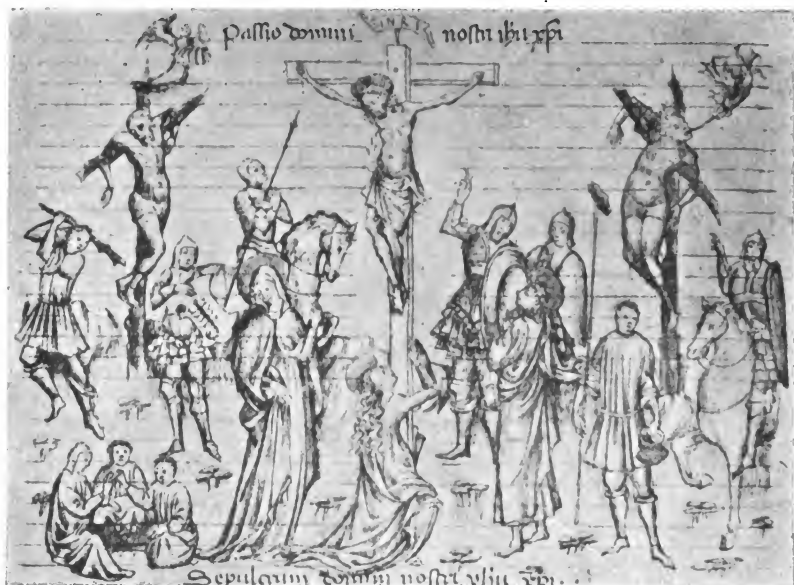 Passio domini nostri ihu xpi
Sepulcrum domini nostri yhu xpi.